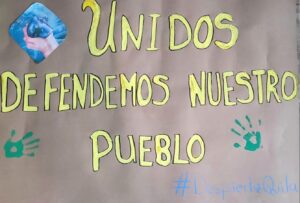 UNIDOS
DEFENDEMOS NUESTRO
PUEBLO
#DespiertaQuila